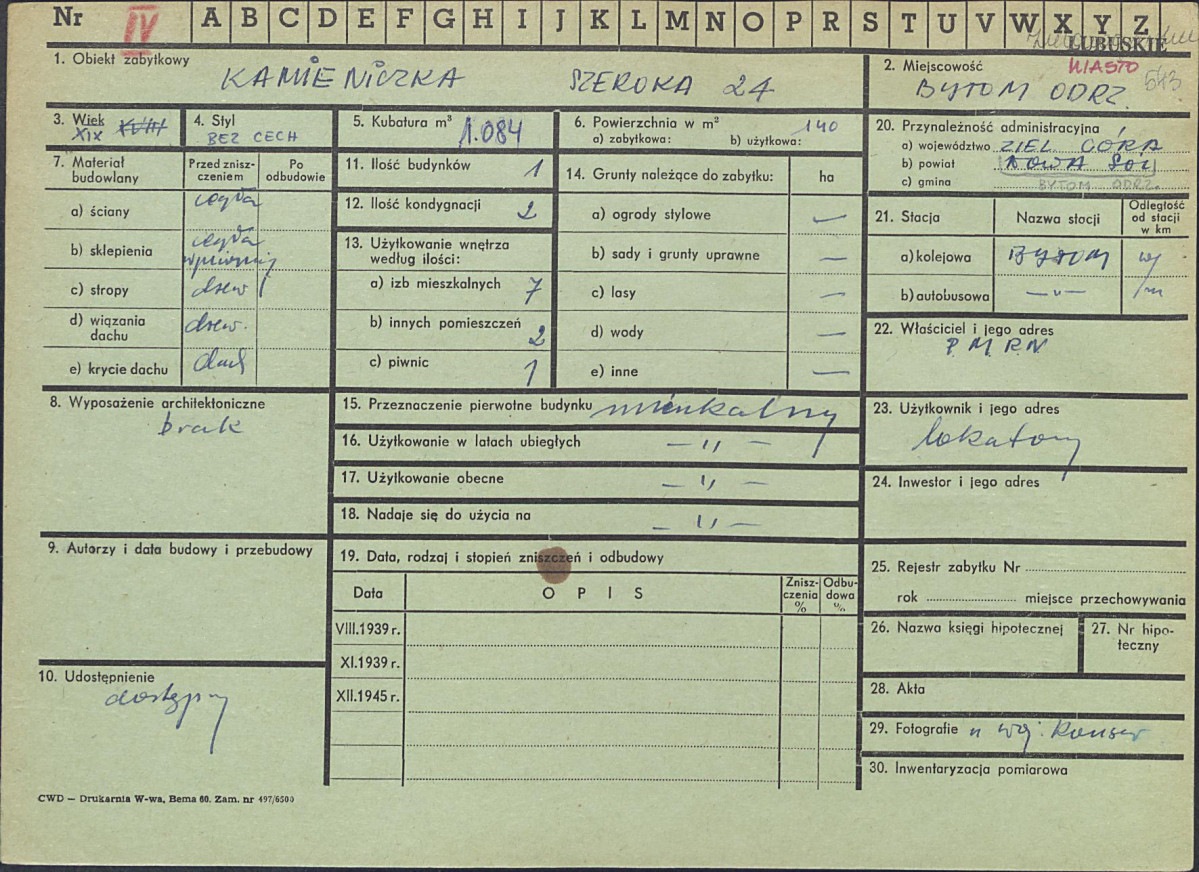 Nr IV A B C D E F G H I J K L M N O P R S T U V W X Y Z
LUBUSKIE
1. Obiekt zabytkowy
KAMIENICZKA SZEROKA 24
2. Miejscowość MIASTO
BYTOM ODRZ. 543
3. Wiek
XIX XVIII
4. Styl
BEZ CECH
5. Kubatura m³
1.084
6. Powierzchnia w m² 140
a) zabytkowa: b) użytkowa:
20. Przynależność administracyjna
a) województwo ZIEL GÓRA
b) powiat NOWA SÓL
c) gmina BYTOM ODRZ.
7. Materiał budowlany
Przed znisz-
czeniem
Po
odbudowie
a) ściany cegła
b) sklepienia cegła
w piwnicy
c) stropy drew
d) wiązania
dachu drew.
e) krycie dachu dach
11. Ilość budynków 1
12. Ilość kondygnacji 2
13. Użytkowanie wnętrza
według ilości:
a) izb mieszkalnych 7
b) innych pomieszczeń 2
c) piwnic 1
14. Grunty należące do zabytku: ha
a) ogrody stylowe —
b) sady i grunty uprawne —
c) lasy —
d) wody —
e) inne —
21. Stacja Nazwa stacji
Odległość
od stacji
w km
a) kolejowa BYTOM
b) autobusowa —„—
22. Właściciel i jego adres
P M R N
8. Wyposażenie architektoniczne
brak
15. Przeznaczenie pierwotne budynku mieszkalny
16. Użytkowanie w latach ubiegłych — „ —
17. Użytkowanie obecne — „ —
18. Nadaje się do użycia na — „ —
23. Użytkownik i jego adres
lokatorzy
24. Inwestor i jego adres
9. Autorzy i data budowy i przebudowy
19. Data, rodzaj i stopień zniszczeń i odbudowy
Data O P I S
Znisz-
czenia
%
Odbu-
dowa
%
VIII.1939 r.
XI.1939 r.
XII.1945 r.
25. Rejestr zabytku Nr
rok miejsce przechowywania
26. Nazwa księgi hipotecznej
27. Nr hipo-
teczny
10. Udostępnienie
dostępny
28. Akta
29. Fotografie u woj. konserw
30. Inwentaryzacja pomiarowa
CWD — Drukarnia W-wa, Bema 60. Zam. nr 497/6500